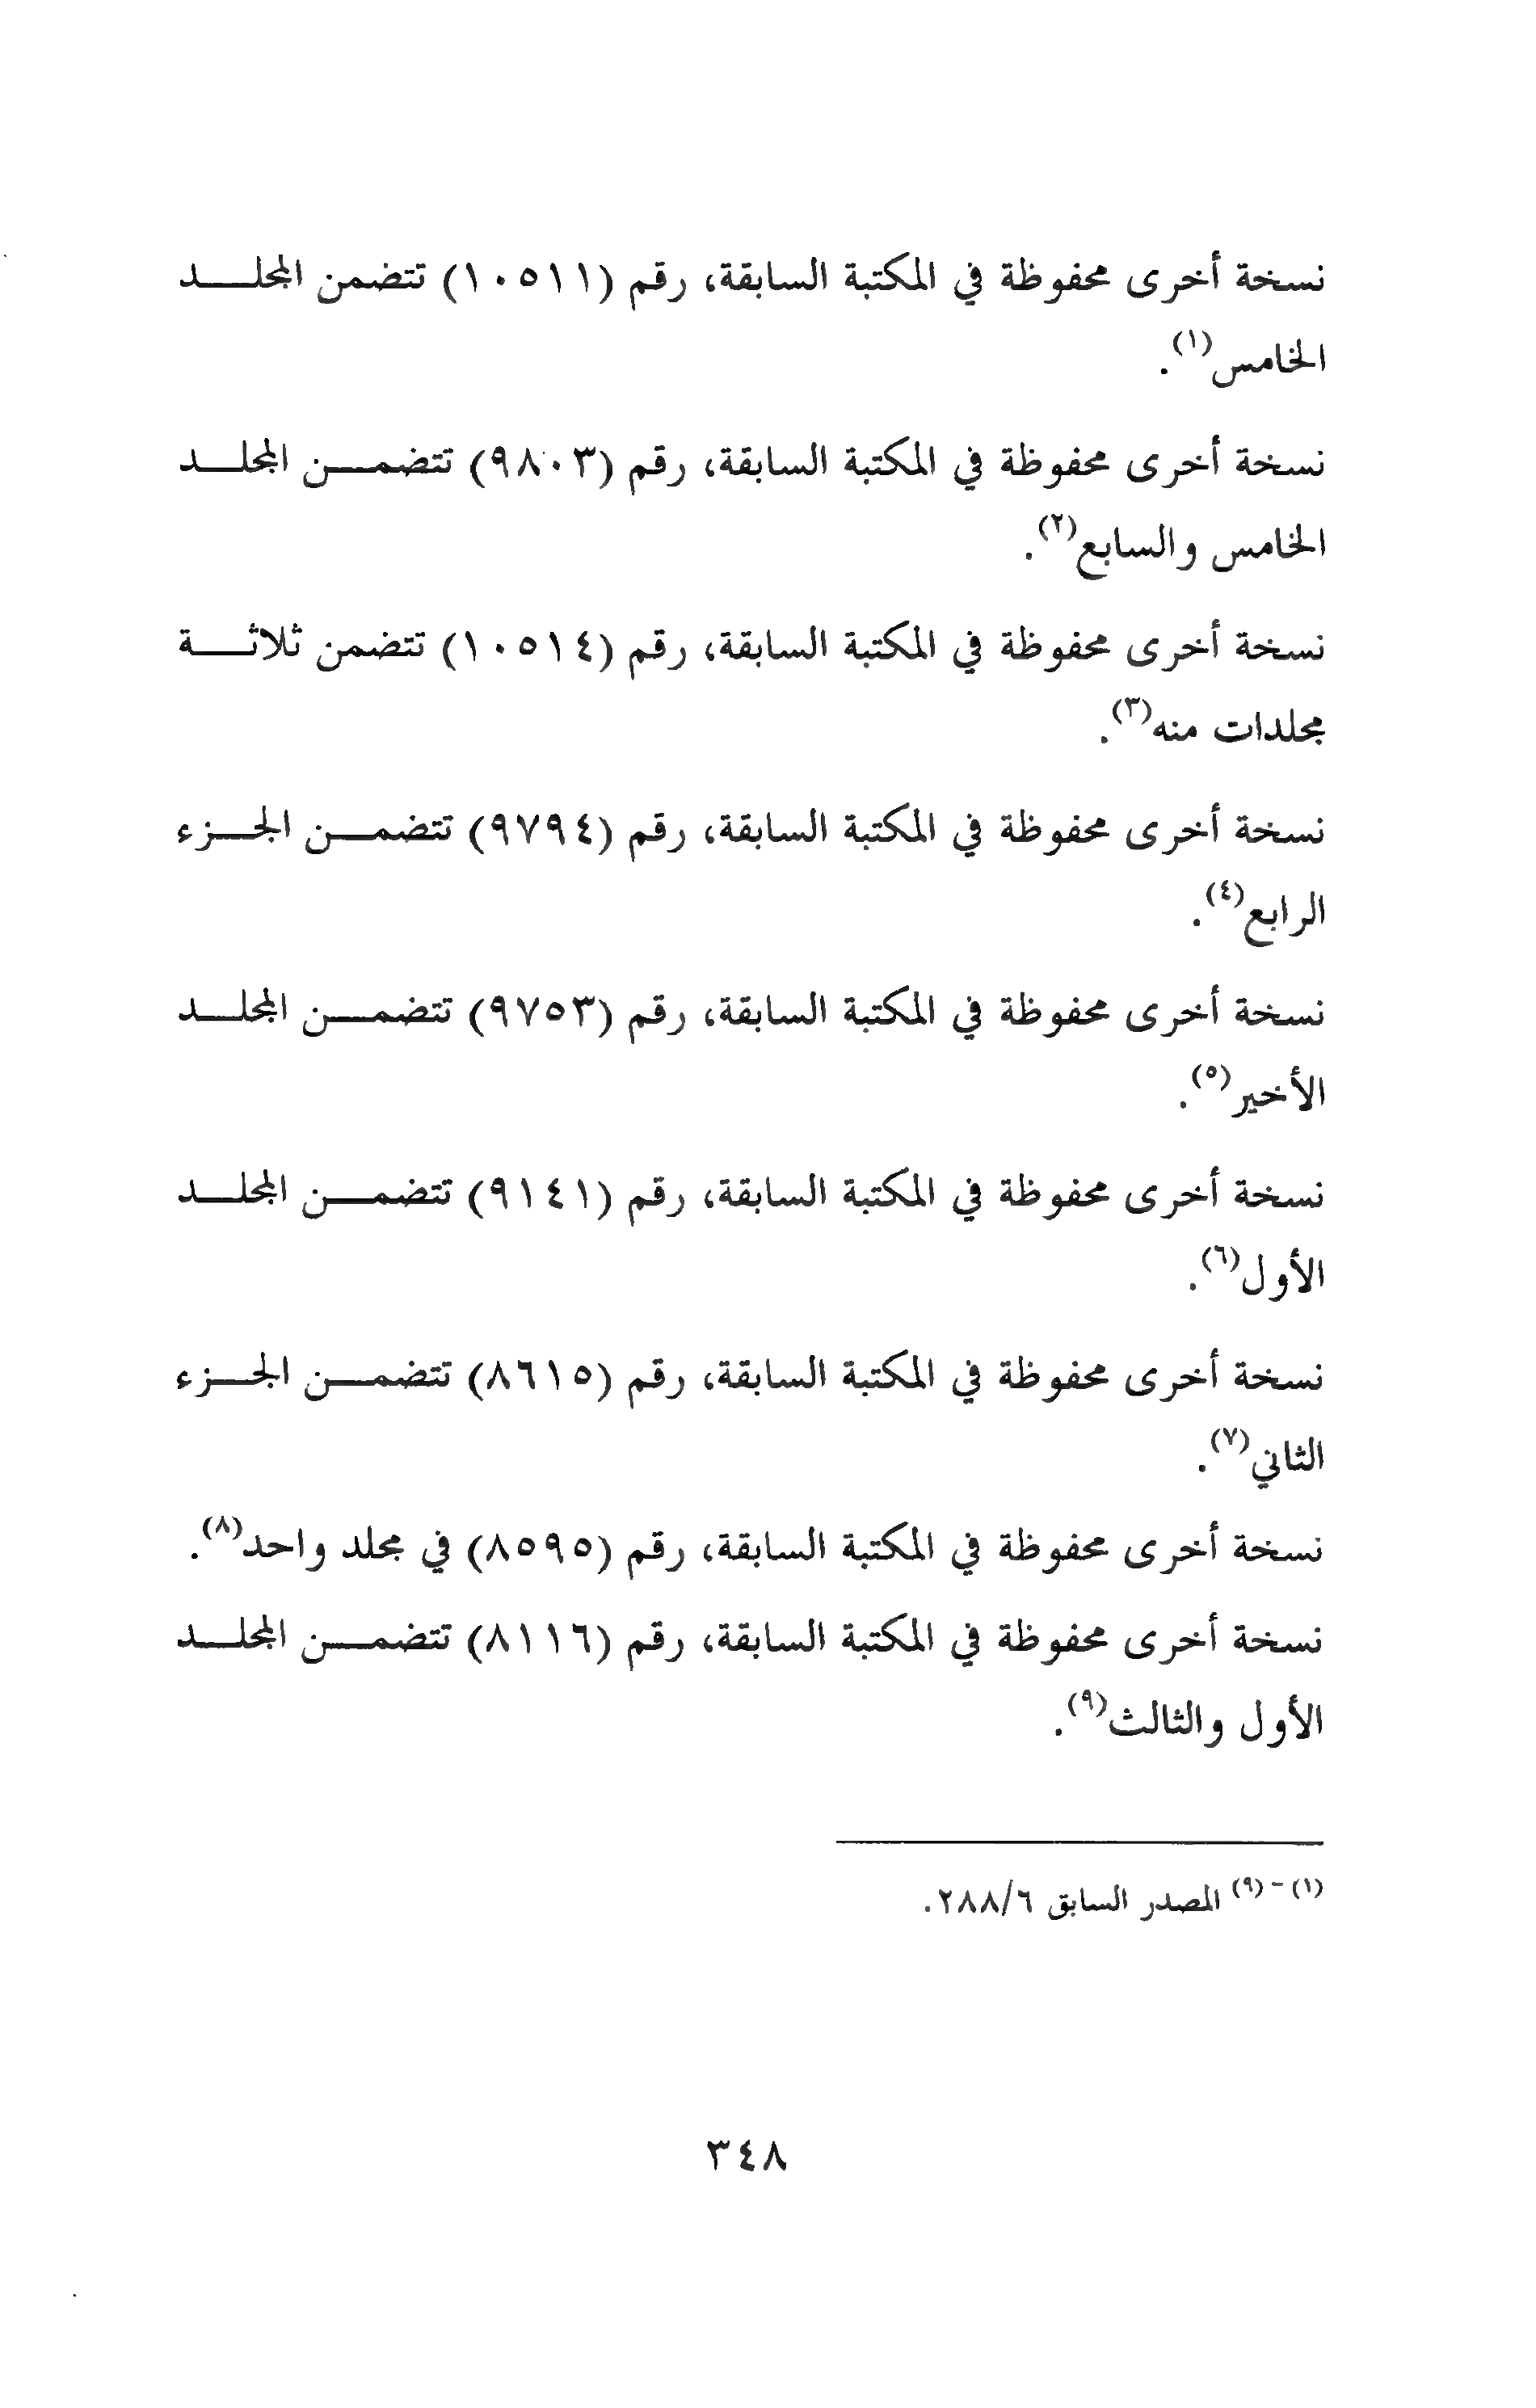 نسخة أخرى محفوظة في المكتبة السابقة، رقم (١٠٥١١) تتضمن المجلد
الخامس(١).
نسخة أخرى محفوظة في المكتبة السابقة، رقم (٩٨٠٣) تتضمن المجلد
الخامس والسابع(٢).
نسخة أخرى محفوظة في المكتبة السابقة، رقم (١٠٥١٤) تتضمن ثلاثة
مجلدات منه(٣).
نسخة أخرى محفوظة في المكتبة السابقة، رقم (٩٧٩٤) تتضمن الجزء
الرابع(٤).
نسخة أخرى محفوظة في المكتبة السابقة، رقم (٩٧٥٣) تتضمن المجلد
الأخير(٥).
نسخة أخرى محفوظة في المكتبة السابقة، رقم (٩١٤١) تتضمن المجلد
الأول(٦).
نسخة أخرى محفوظة في المكتبة السابقة، رقم (٨٦١٥) تتضمن الجزء
الثاني(٧).
نسخة أخرى محفوظة في المكتبة السابقة، رقم (٨٥٩٥) في مجلد واحد(٨).
نسخة أخرى محفوظة في المكتبة السابقة، رقم (٨١١٦) تتضمن المجلد
الأول والثالث(٩).
(١) - (٩) المصدر السابق ٢٨٨/٦.
٣٤٨